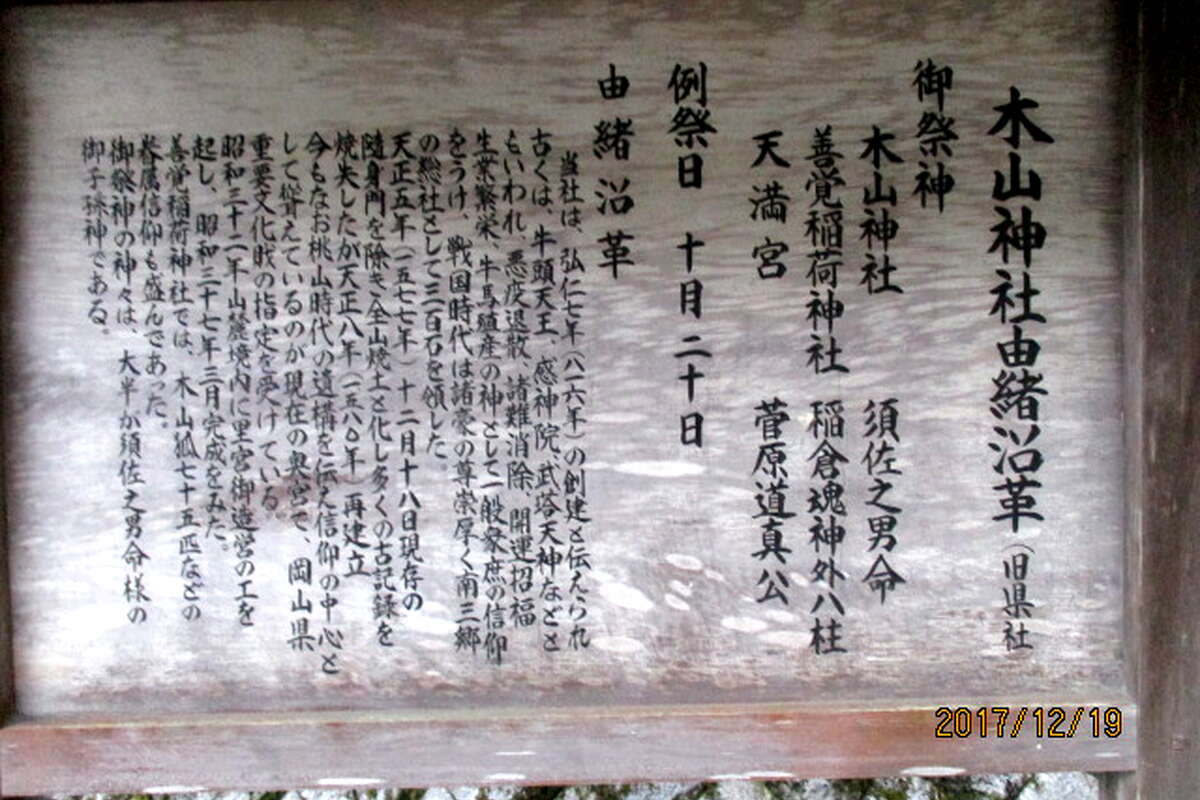 木山神社由緒沿革(旧県社)
御祭神
木山神社 須佐之男命
善覚稲荷神社 稲倉魂神外八柱
天満宮 菅原道真公
例祭日 十月二十日
由緒沿革
当社は、弘仁七年(八一六年)の創建と伝えられ
古くは、牛頭天王、感神院、武塔天神などと
もいわれ、悪疫退散、諸難消除、開運招福
生業繁栄、牛馬殖産の神として一般衆庶の信仰
をうけ、戦国時代は諸豪の尊崇厚く南三郷
の総社として三百石を領した。
天正五年(一五七七年)十二月十八日現存の
随身門を除き全山焼土と化し多くの古記録を
焼失したが天正八年(一五八〇年)再建立
今もなお桃山時代の遺構を伝え信仰の中心と
して聳えているのが現在の奥宮で、岡山県
重要文化財の指定を受けている
昭和三十二年山麓境内に里宮御造営の工を
起し、昭和三十七年三月完成をみた。
善覚稲荷神社では、木山狐七十五匹などの
眷属信仰も盛んであった。
御祭神の神々は、大半が須佐之男命様の
御子孫神である。
2017/12/19